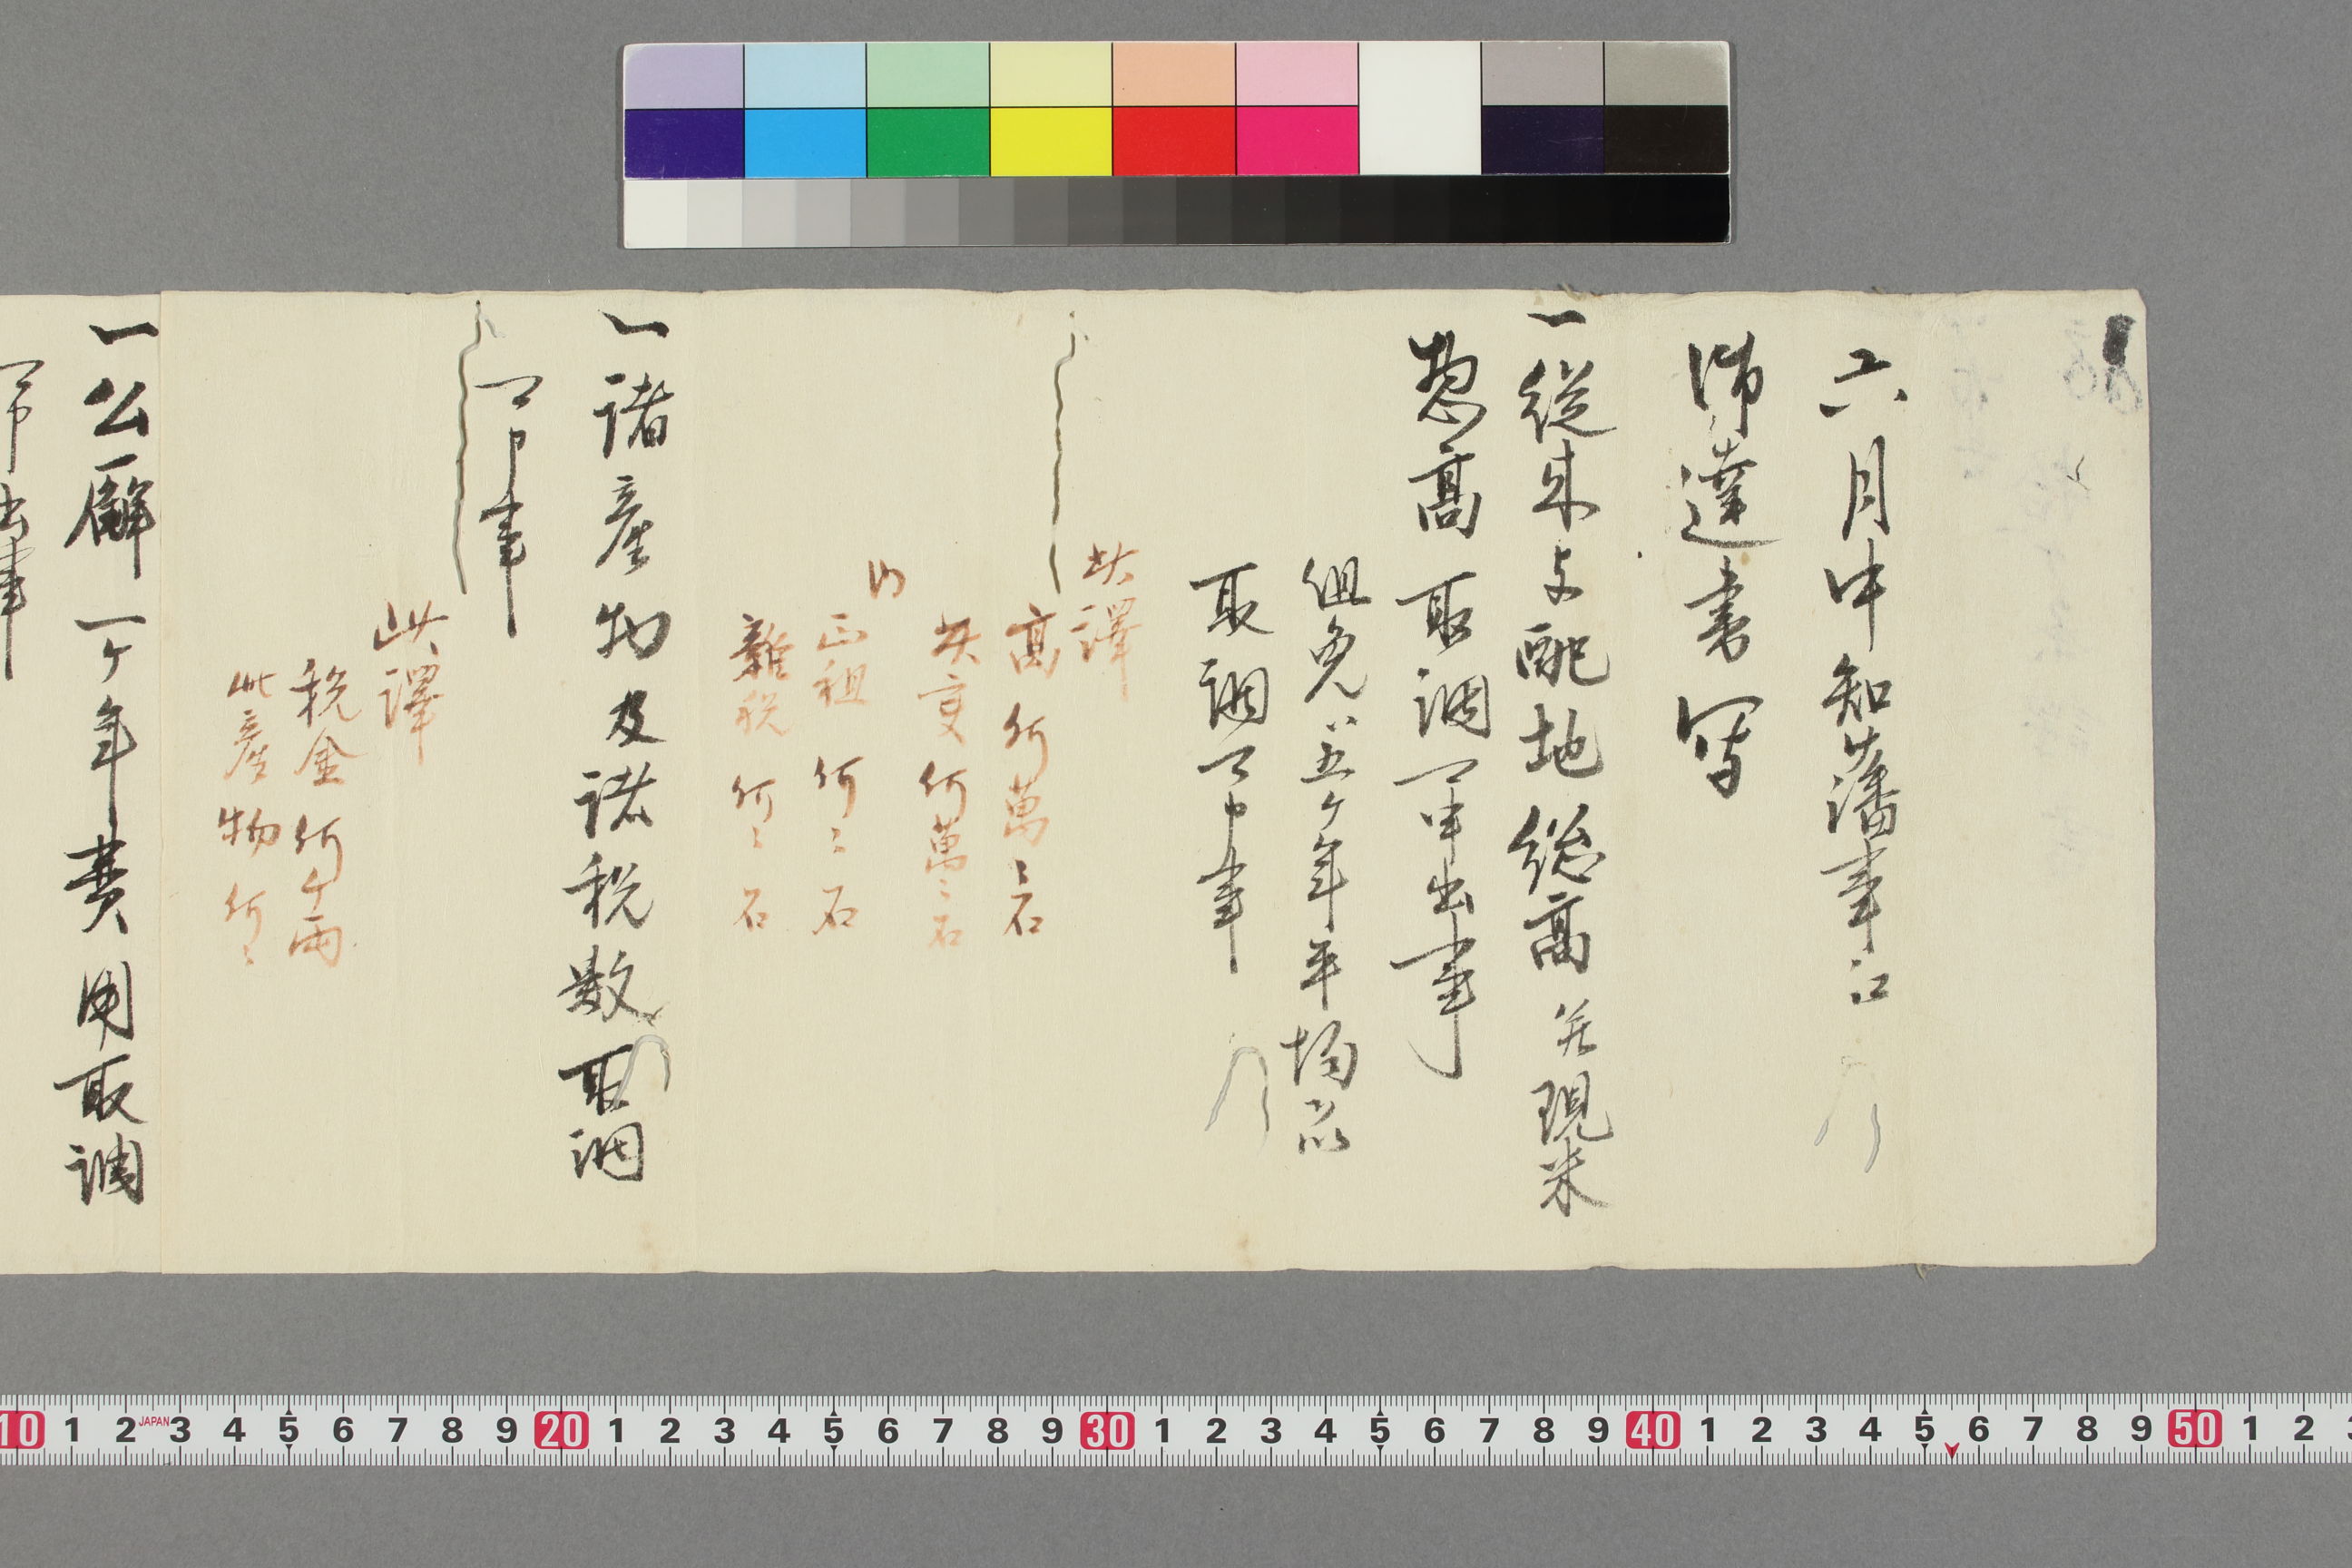 六月中知藩事江
御達書写
一従来支配地総高并現米
惣高取調可申出事
但免ハ五ケ年平均以
取調可申事
此譯
高何萬〻石
内
正租何〻石
雑税何〻石
一諸産物及諸税数取調
可申事
此譯
税金何ケ両
此産物何〻
一公廨一ケ年費用取調
可申出事
10 1 2 JAPAN 3 4 5 6 7 8 9 20 1 2 3 4 5 6 7 8 9 30 1 2 3 4 5 6 7 8 9 40 1 2 3 4 5 6 7 8 9 50 1 2